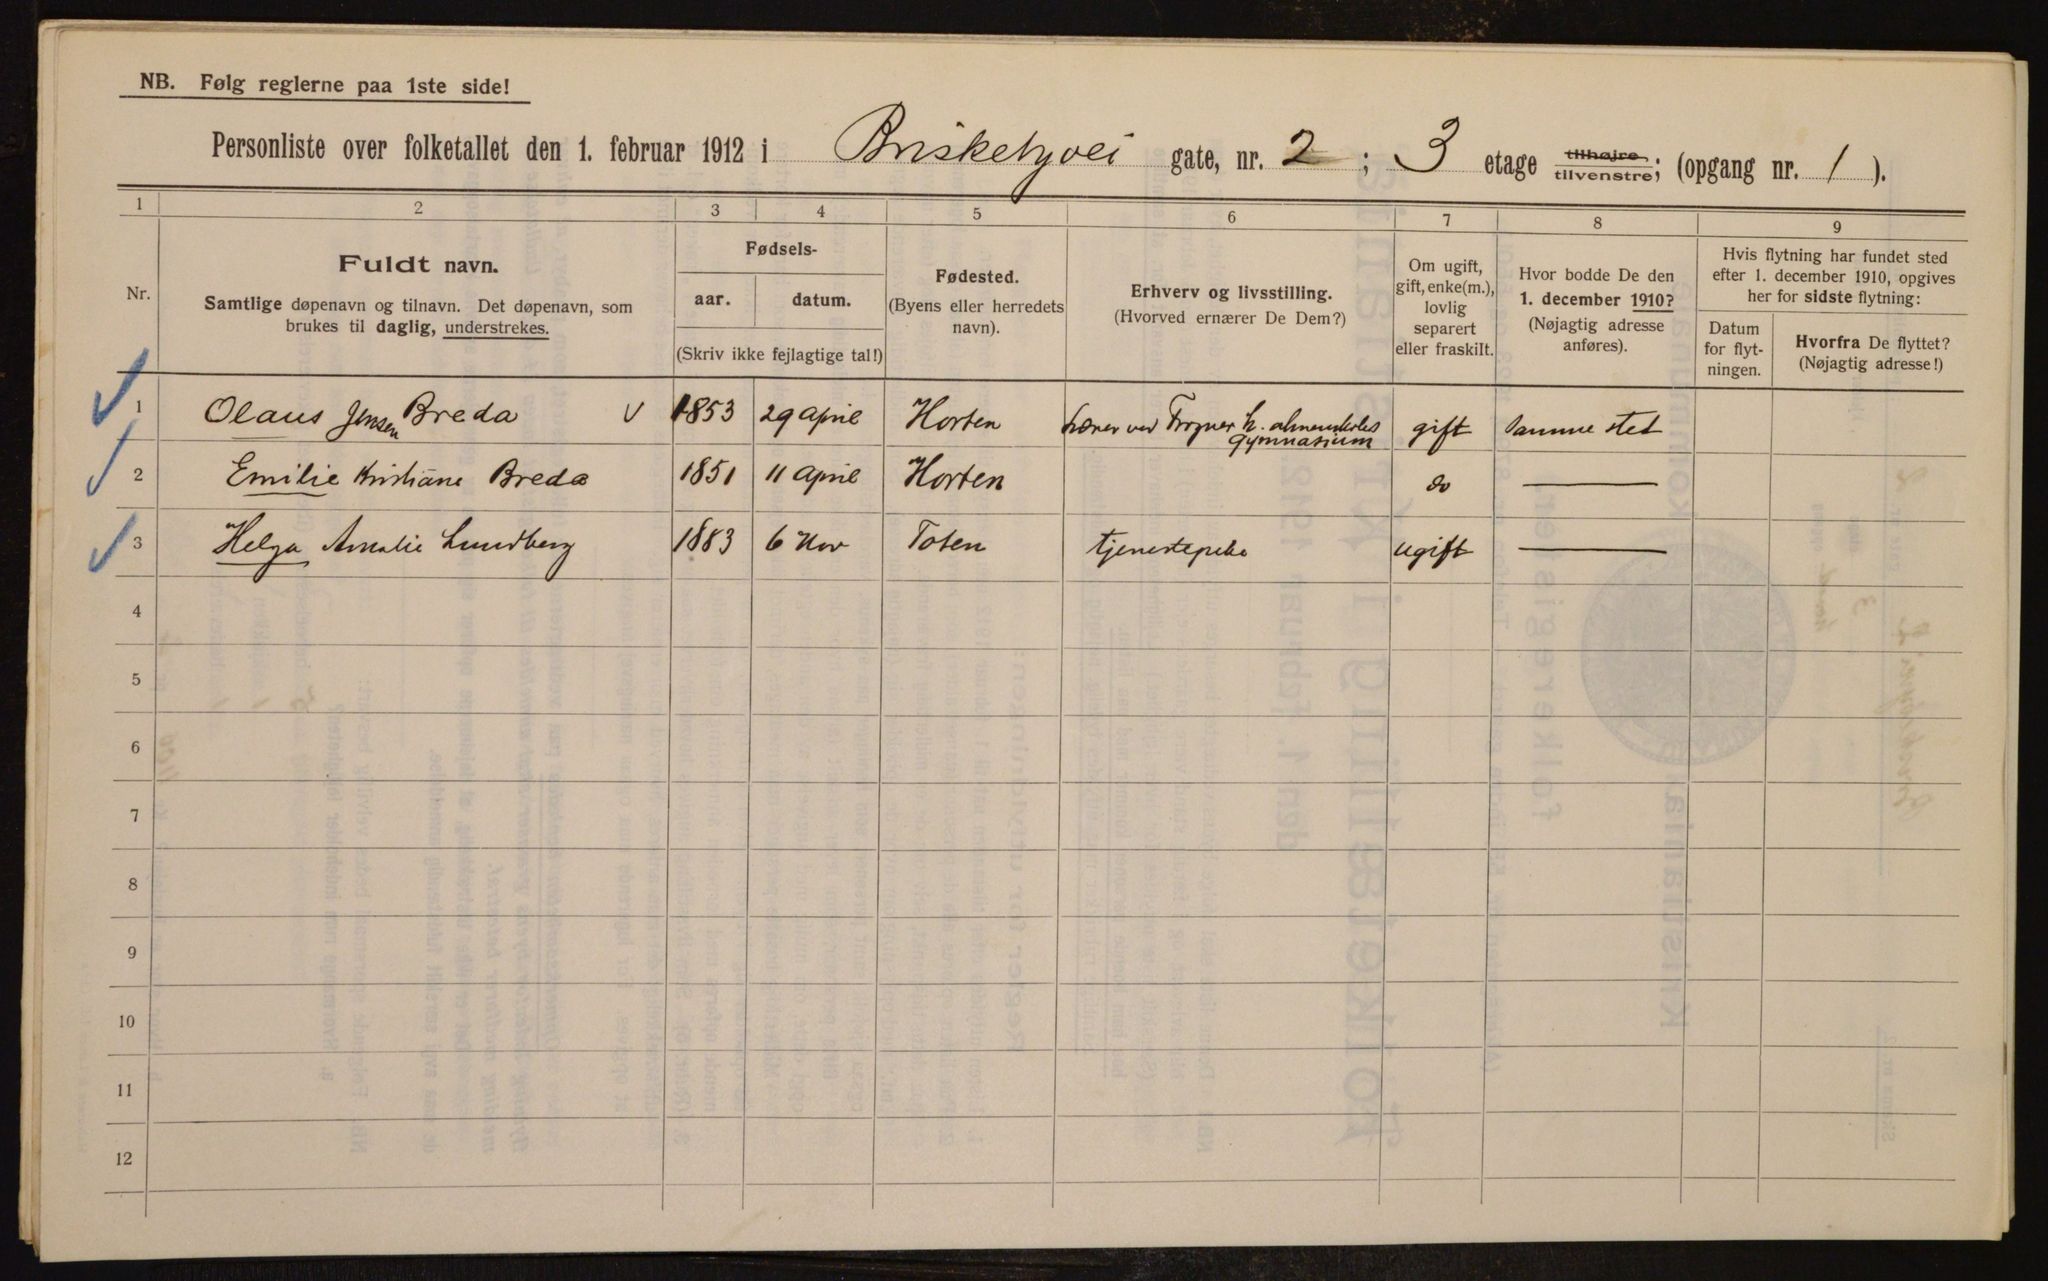 NB. Følg reglerne paa 1ste side!
Personliste over folketallet den 1. februar 1912 i Briskebyvei gate, nr. 2 ; 3 etage tilhøjre tilvenstre; (opgang nr. 1 ).
1 2 3 4 5 6 7 8 9
Nr.
Fuldt navn.
Samtlige døpenavn og tilnavn. Det døpenavn, som
brukes til daglig, understrekes.
Fødsels-
aar. datum.
(Skriv ikke fejlagtige tal!)
Fødested.
(Byens eller herredets
navn).
Erhverv og livsstilling.
(Hvorved ernærer De Dem?)
Om ugift,
gift, enke(m.),
lovlig
separert
eller fraskilt.
Hvor bodde De den
1. december 1910?
(Nøjagtig adresse
anføres).
Hvis flytning har fundet sted
efter 1. december 1910, opgives
her for sidste flytning:
Datum
for flyt-
ningen.
Hvorfra De flyttet?
(Nøjagtig adresse!)
1 Olaus Jensen Breda 1853 29 April Horten Lærer ved Frogner h. almendels gymnasium gift Samme sted
2 Emilie Kristiane Breda 1851 11 April Horten do
3 Helga Amalie Lundberg 1883 6 Nov Toten tjenestepike ugift
4
5
6
7
8
9
10
11
12